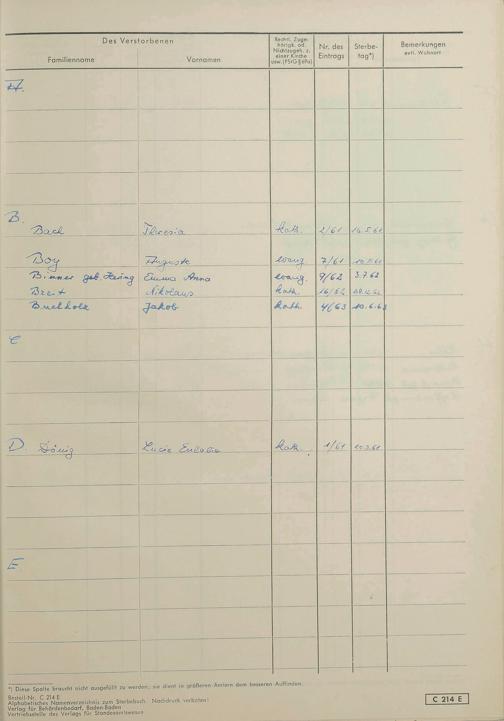 Des Verstorbenen
Familienname Vornamen
Rechtl. Zuge-
hörigk. od.
Nichtzugeh. z.
einer Kirche
usw. (PStG § 69a)
Nr. des
Eintrags
Sterbe-
tag*)
Bemerkungen
evtl. Wohnort
A.
B.
Bach Theresia kath. 2/61 14.5.61
Boy Auguste evang. 7/61
Binner geb. Hering Emma Anna evang. 9/62 3.7.62
Breit Nikolaus kath. 16/62
Buchholz Jakob kath. 4/63 10.6.63
C
D Dönig Lucie kath. 1/61
E
*) Diese Spalte braucht nicht ausgefüllt zu werden; sie dient in größeren Ämtern dem besseren Auffinden.
Bestell-Nr. C 214 E
Alphabetisches Namenverzeichnis zum Sterbebuch. Nachdruck verboten!
Verlag für Behördenbedarf, Baden-Baden
Vertriebsstelle des Verlags für Standesamtswesen
C 214 E